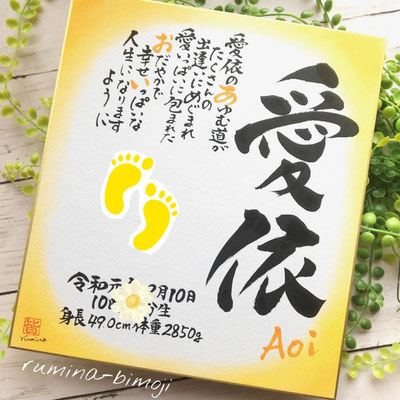 愛依
Aoi
愛依のあゆむ道が
たくさんの
出逢いにめぐまれ
愛いっぱいに包まれた
おだやかで
幸せいっぱいな
人生になります
ように
令和元 月10日
10 分生
身長49.0cm 体重2850g
rumina
rumina-bimoji